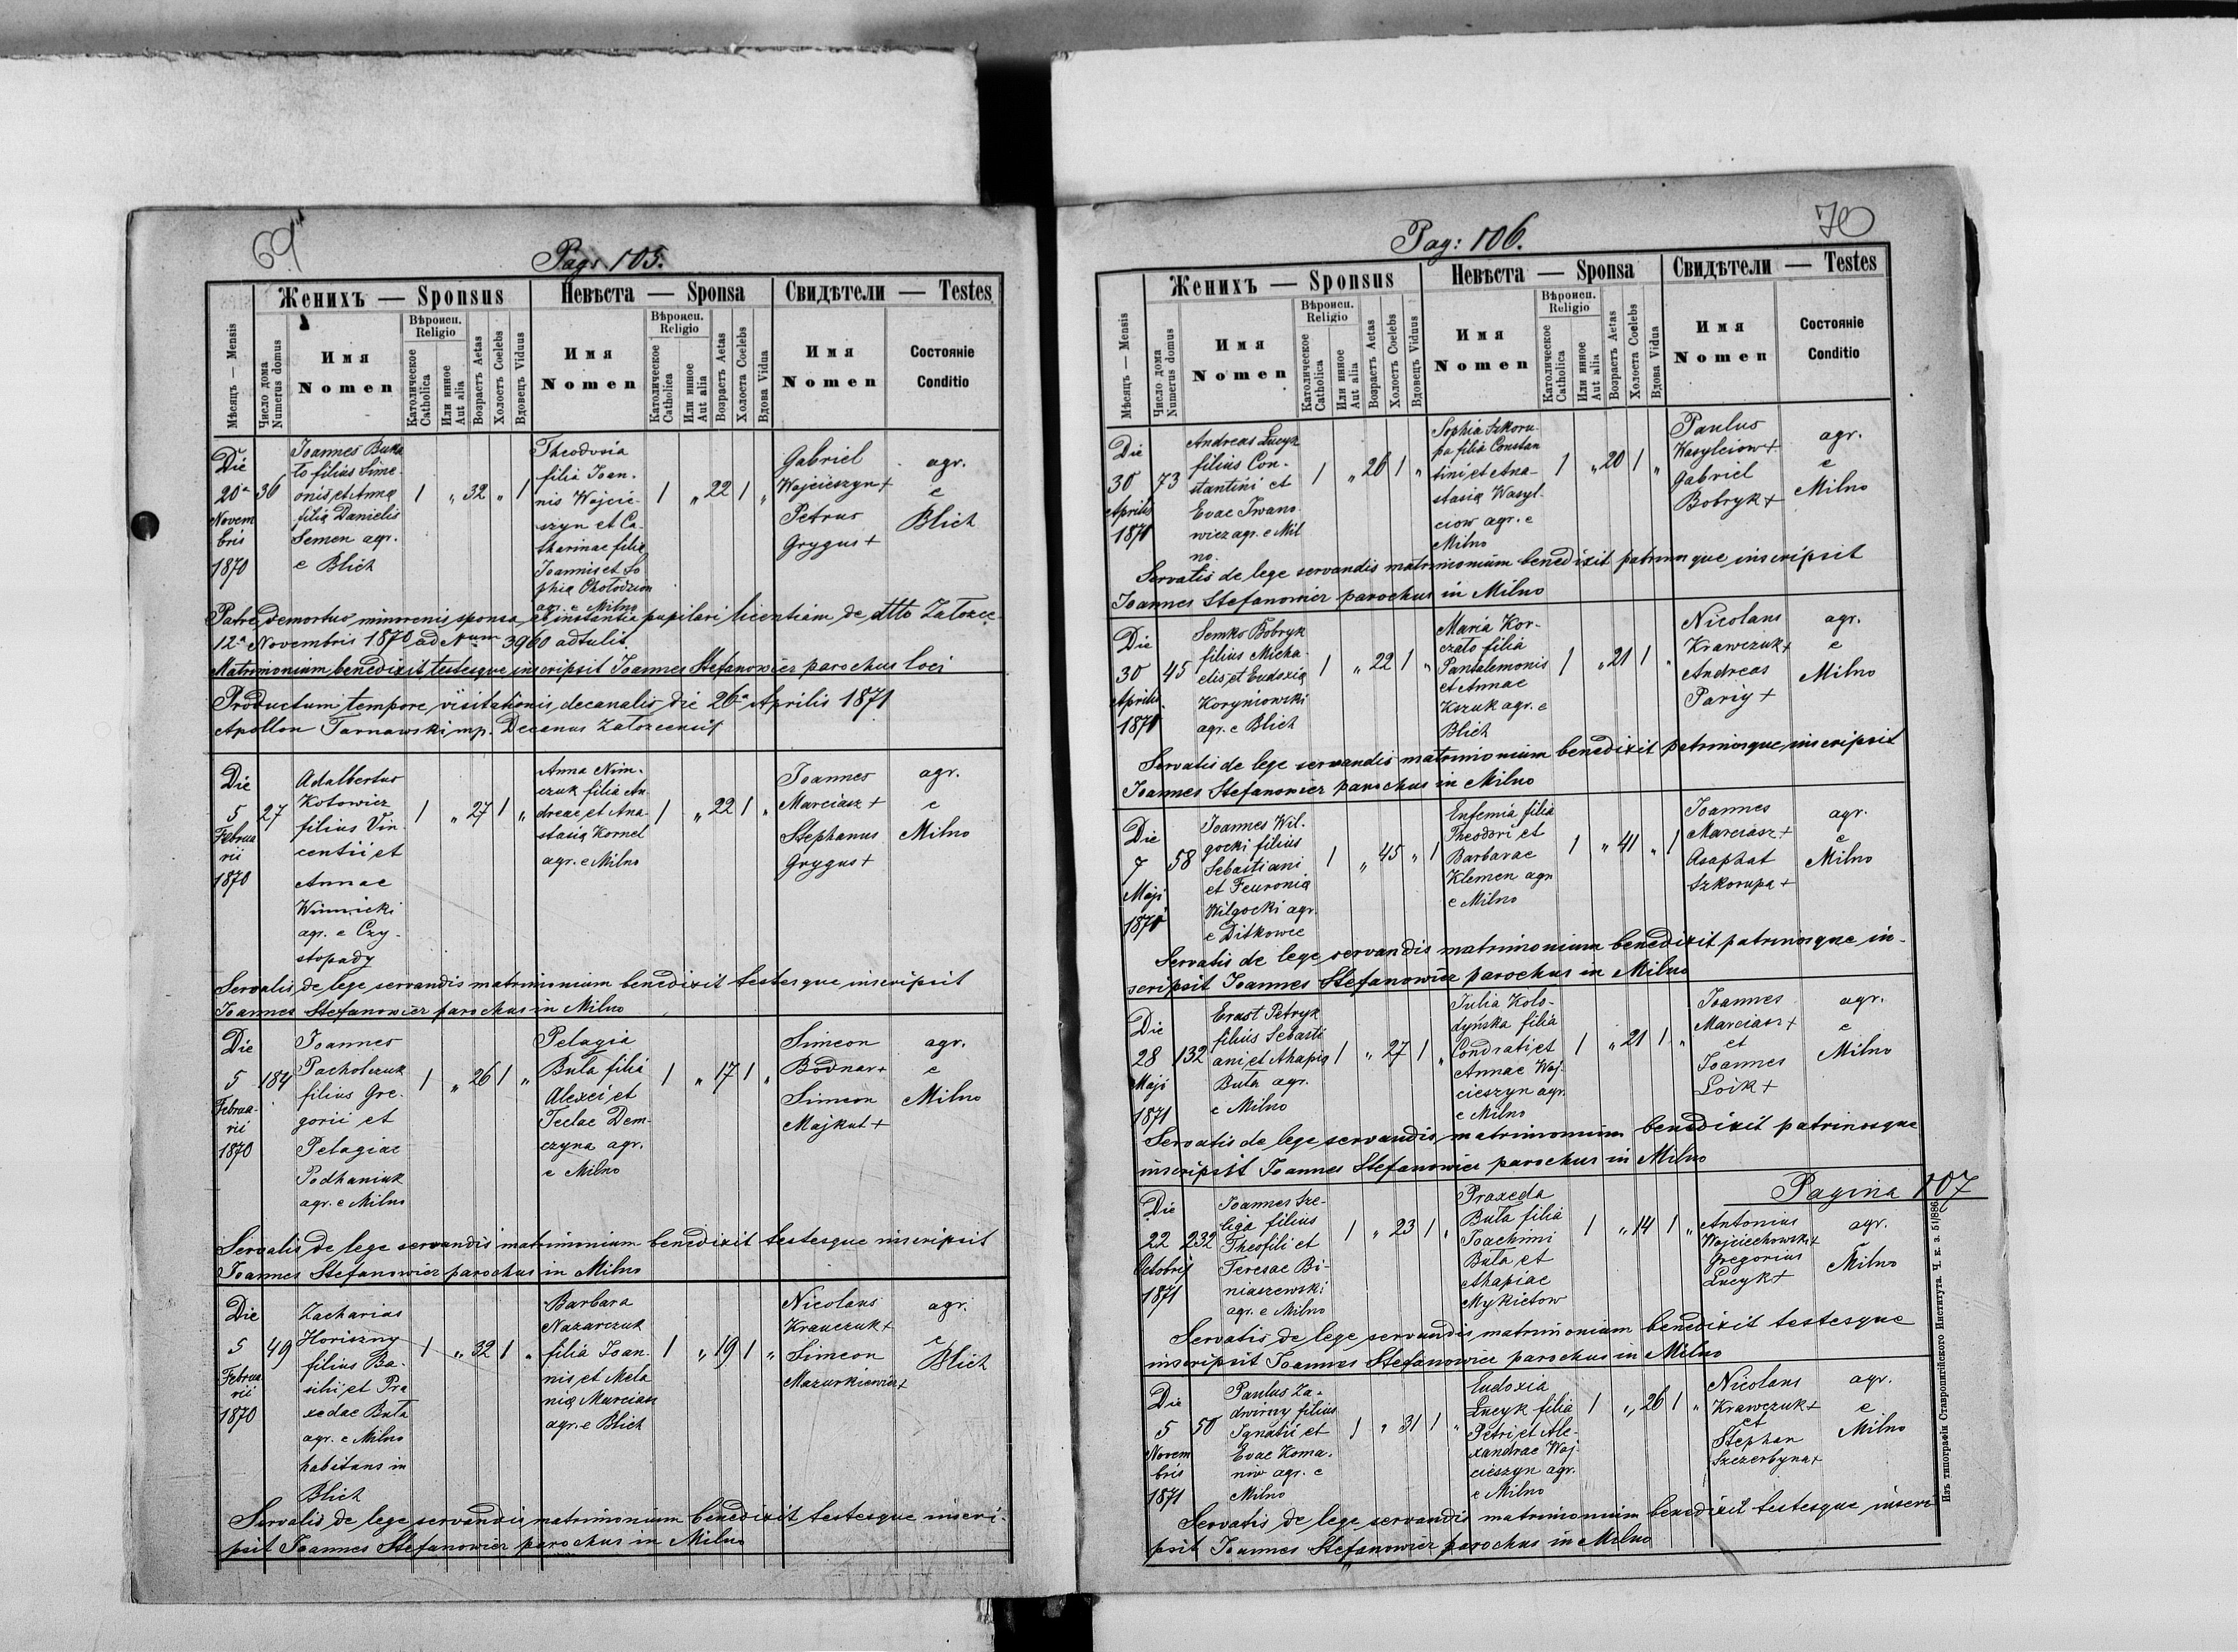 69
Pag: 105.
Женихъ — Sponsus
Невѣста — Sponsa
Свидѣтели — Testes
Мѣсяцъ — Mensis
Число дома
Numerus domus
Имя
Nomen
Вѣроисп.
Religio
Католическое
Catholica
Или инное
Aut alia
Возрастъ Aetas
Холостъ Coelebs
Вдовецъ Viduus
Имя
Nomen
Вѣроисп.
Religio
Католическое
Catholica
Или инное
Aut alia
Возрастъ Aetas
Холоста Coelebs
Вдова Vidua
Имя
Nomen
Состояніе
Conditio
Die
20a
Novem
bris
1870
36
Joannes Buka
to filius Sime
onis et Anna
filia Danielis
Semen agr.
e Blich
1 „ 32 „ 1
Theodosia
filia Joan-
nis Wojcie-
szyn et Ca-
tharinae filia
Joannis et So
phia Chołodzion
agr. e Milno
1 „ 22 1 „
Gabriel
Wojcieszyn +
Petrus
Grygus +
agr.
e
Blich
Patre demortuo minorenis sponsa, et instantia pupilari licentiam de dtto Załozce
12a Novembris 1870 ad Num 3960 adtulit.
Matrimonium benedixit testesque inscripsit Joannes Stefanowicz parochus loci
Productum tempore visitationis decanalis die 26a Aprilis 1871
Apollon Tarnawski mp. Decanus Załozecensis
Die
5
Februa
rii
1870
27
Adalbertus
Kotowicz
filius Vin-
centii et
Annae
Winnicki
agr. e Czy-
stopady
1 „ 27 1 „
Anna Nim-
czuk filia An
dreae et Ana-
stasia Kornel
agr. e Milno
1 „ 22 1 „
Joannes
Marciasz +
Stephanus
Grygus +
agr.
e
Milno
Servatis de lege servandis matrimonium benedixit testesque inscripsit
Joannes Stefanowicz parochus in Milno
Die
5
Februa-
rii
1870
184
Joannes
Pacholczuk
filius Gre-
gorii et
Pelagiae
Podhaniuk
agr. e Milno
1 „ 26 1 „
Pelagia
Buta filia
Alexei et
Teclae Dem-
czyna agr.
e Milno
1 „ 17 1 „
Simeon
Bodnar +
Simeon
Majkut +
agr.
e
Milno
Servatis de lege servandis matrimonium benedixit testesque inscripsit
Joannes Stefanowicz parochus in Milno
Die
5
Februa
rii
1870
49
Zacharias
Horiszny
filius Ba-
silii et Pra
xedae Buta
agr. e Milno
habitans in
Blich
1 „ 32 1 „
Barbara
Nazarczuk
filia Joan-
nis et Mela
nia Marciasz
agr. e Blich
1 „ 19 1 „
Nicolaus
Krawczuk +
Simeon
Mazurkiewicz +
agr.
e
Blich
Servatis de lege servandis matrimonium benedixit testesque inscri-
psit Joannes Stefanowicz parochus in Milno
70
Pag: 106.
Женихъ — Sponsus
Невѣста — Sponsa
Свидѣтели — Testes
Мѣсяцъ — Mensis
Число дома
Numerus domus
Имя
Nomen
Вѣроисп.
Religio
Католическое
Catholica
Или инное
Aut alia
Возрастъ Aetas
Холостъ Coelebs
Вдовецъ Viduus
Имя
Nomen
Вѣроисп.
Religio
Католическое
Catholica
Или инное
Aut alia
Возрастъ Aetas
Холоста Coelebs
Вдова Vidua
Имя
Nomen
Состояніе
Conditio
Die
30
Aprilis
1871
73
Andreas Łucyk
filius Con-
stantini et
Evae Iwano
wicz agr. e Mil
no.
1 „ 26 1 „
Sophia Szkoru-
pa filia Constan
tini et Ana-
stasia Wasyl-
ciow agr. e
Milno
1 „ 20 1 „
Paulus
Wasylciow +
Gabriel
Bobryk +
agr.
e
Milno
Servatis de lege servandis matrimonium benedixit patrinosque inscripsit
Joannes Stefanowicz parochus in Milno
Die
30
Aprilis
1871
45
Semko Bobryk
filius Micha-
elis et Eudoxia
Koryniowski
agr. e Blich
1 „ 22 1 „
Maria Kor-
czato filia
Pantalemonis
et Annae
Kozuk agr. e
Blich
1 „ 21 1 „
Nicolaus
Krawczuk +
Andreas
Pariy +
agr.
e
Milno
Servatis de lege servandis matrimonium benedixit patrinosque inscripsit
Joannes Stefanowicz parochus in Milno
Die
7
Maji
1871
58
Joannes Wil-
gocki filius
Sebastiani
et Feuronia
Wilgocki agr.
e Ditkowce
1 „ 45 „ 1
Eufemia filia
Theodori et
Barbarae
Klemen agr.
e Milno
1 „ 41 „ 1
Joannes
Marciasz +
Asaphat
Szkorupa +
agr.
e
Milno
Servatis de lege servandis matrimonium benedixit patrinosque in-
scripsit Joannes Stefanowicz parochus in Milno
Die
28
Maji
1871
132
Erast Petryk
filius Sebasti
ani et Ahapia
Buta agr.
e Milno
1 „ 27 1 „
Julia Koło-
dyńska filia
Condrati et
Annae Woj-
cieszyn agr.
e Milno
1 „ 21 1 „
Joannes
Marciasz +
et
Joannes
Łoik +
agr.
e
Milno
Servatis de lege servandis matrimonium benedixit patrinosque
inscripsit Joannes Stefanowicz parochus in Milno
Pagina 107
Die
22
Octobris
1871
232
Joannes Sze-
liga filius
Theofili et
Teresae Bi-
niaszewski
agr. e Milno
1 „ 23 1 „
Praxeda
Buta filia
Joachimi
Buta et
Ahapiae
Mykietow
1 „ 14 1 „
Antonius
Wojciechowski +
Gregorius
Łucyk +
agr.
Milno
Servatis de lege servandis matrimonium benedixit testesque
inscripsit Joannes Stefanowicz parochus in Milno
Die
5
Novem
bris
1871
50
Paulus Za-
dwirny filius
Ignatii et
Evae Koma-
niw agr. e
Milno
1 „ 31 1 „
Eudoxia
Łucyk filia
Petri et Ale-
xandrae Woj-
cieszyn agr.
e Milno
1 „ 26 1 „
Nicolaus
Krawczuk +
et
Stephan
Szczerbyna +
agr.
e
Milno
Servatis de lege servandis matrimonium benedixit testesque inscri
psit Joannes Stefanowicz parochus in Milno
Изъ типографіи Ставропигійского Института. Ч. к. з. 51/886